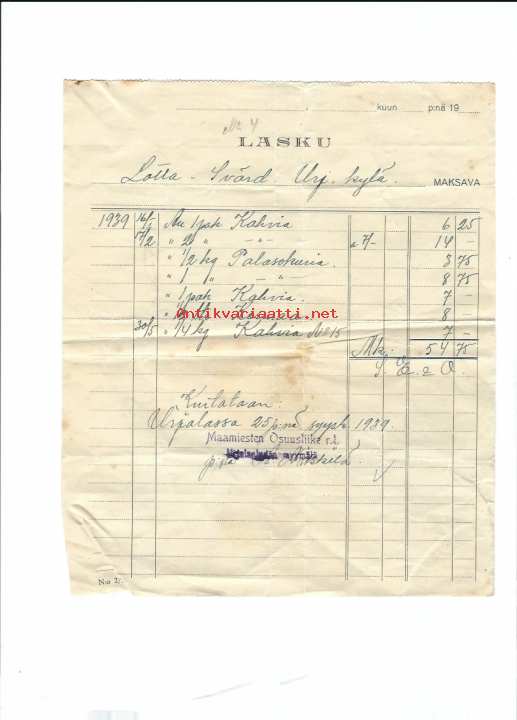 kuun p:nä 19
No 4
LASKU
Lotta - Svärd. Urj. kylä. MAKSAVA
1939 16/1 Mu 1 pak Kahvia 6 25
17/2 " 2 " - " - a 7/- 14 -
" 1/2 kg Palasokuria 8 75
" 1 " - " - 8 75
" 1 pak Kahvia. 7 -
antikvariaatti.net 8 -
30/5 " 1/4 kg Kahvia No 15 7 -
Mk. 54 75
S. E. & O.
Kuitataan:
Urjalassa 25 p:nä syysk. 1939.
Maamiesten Osuusliike r.l.
myymälä
N:o 2/.